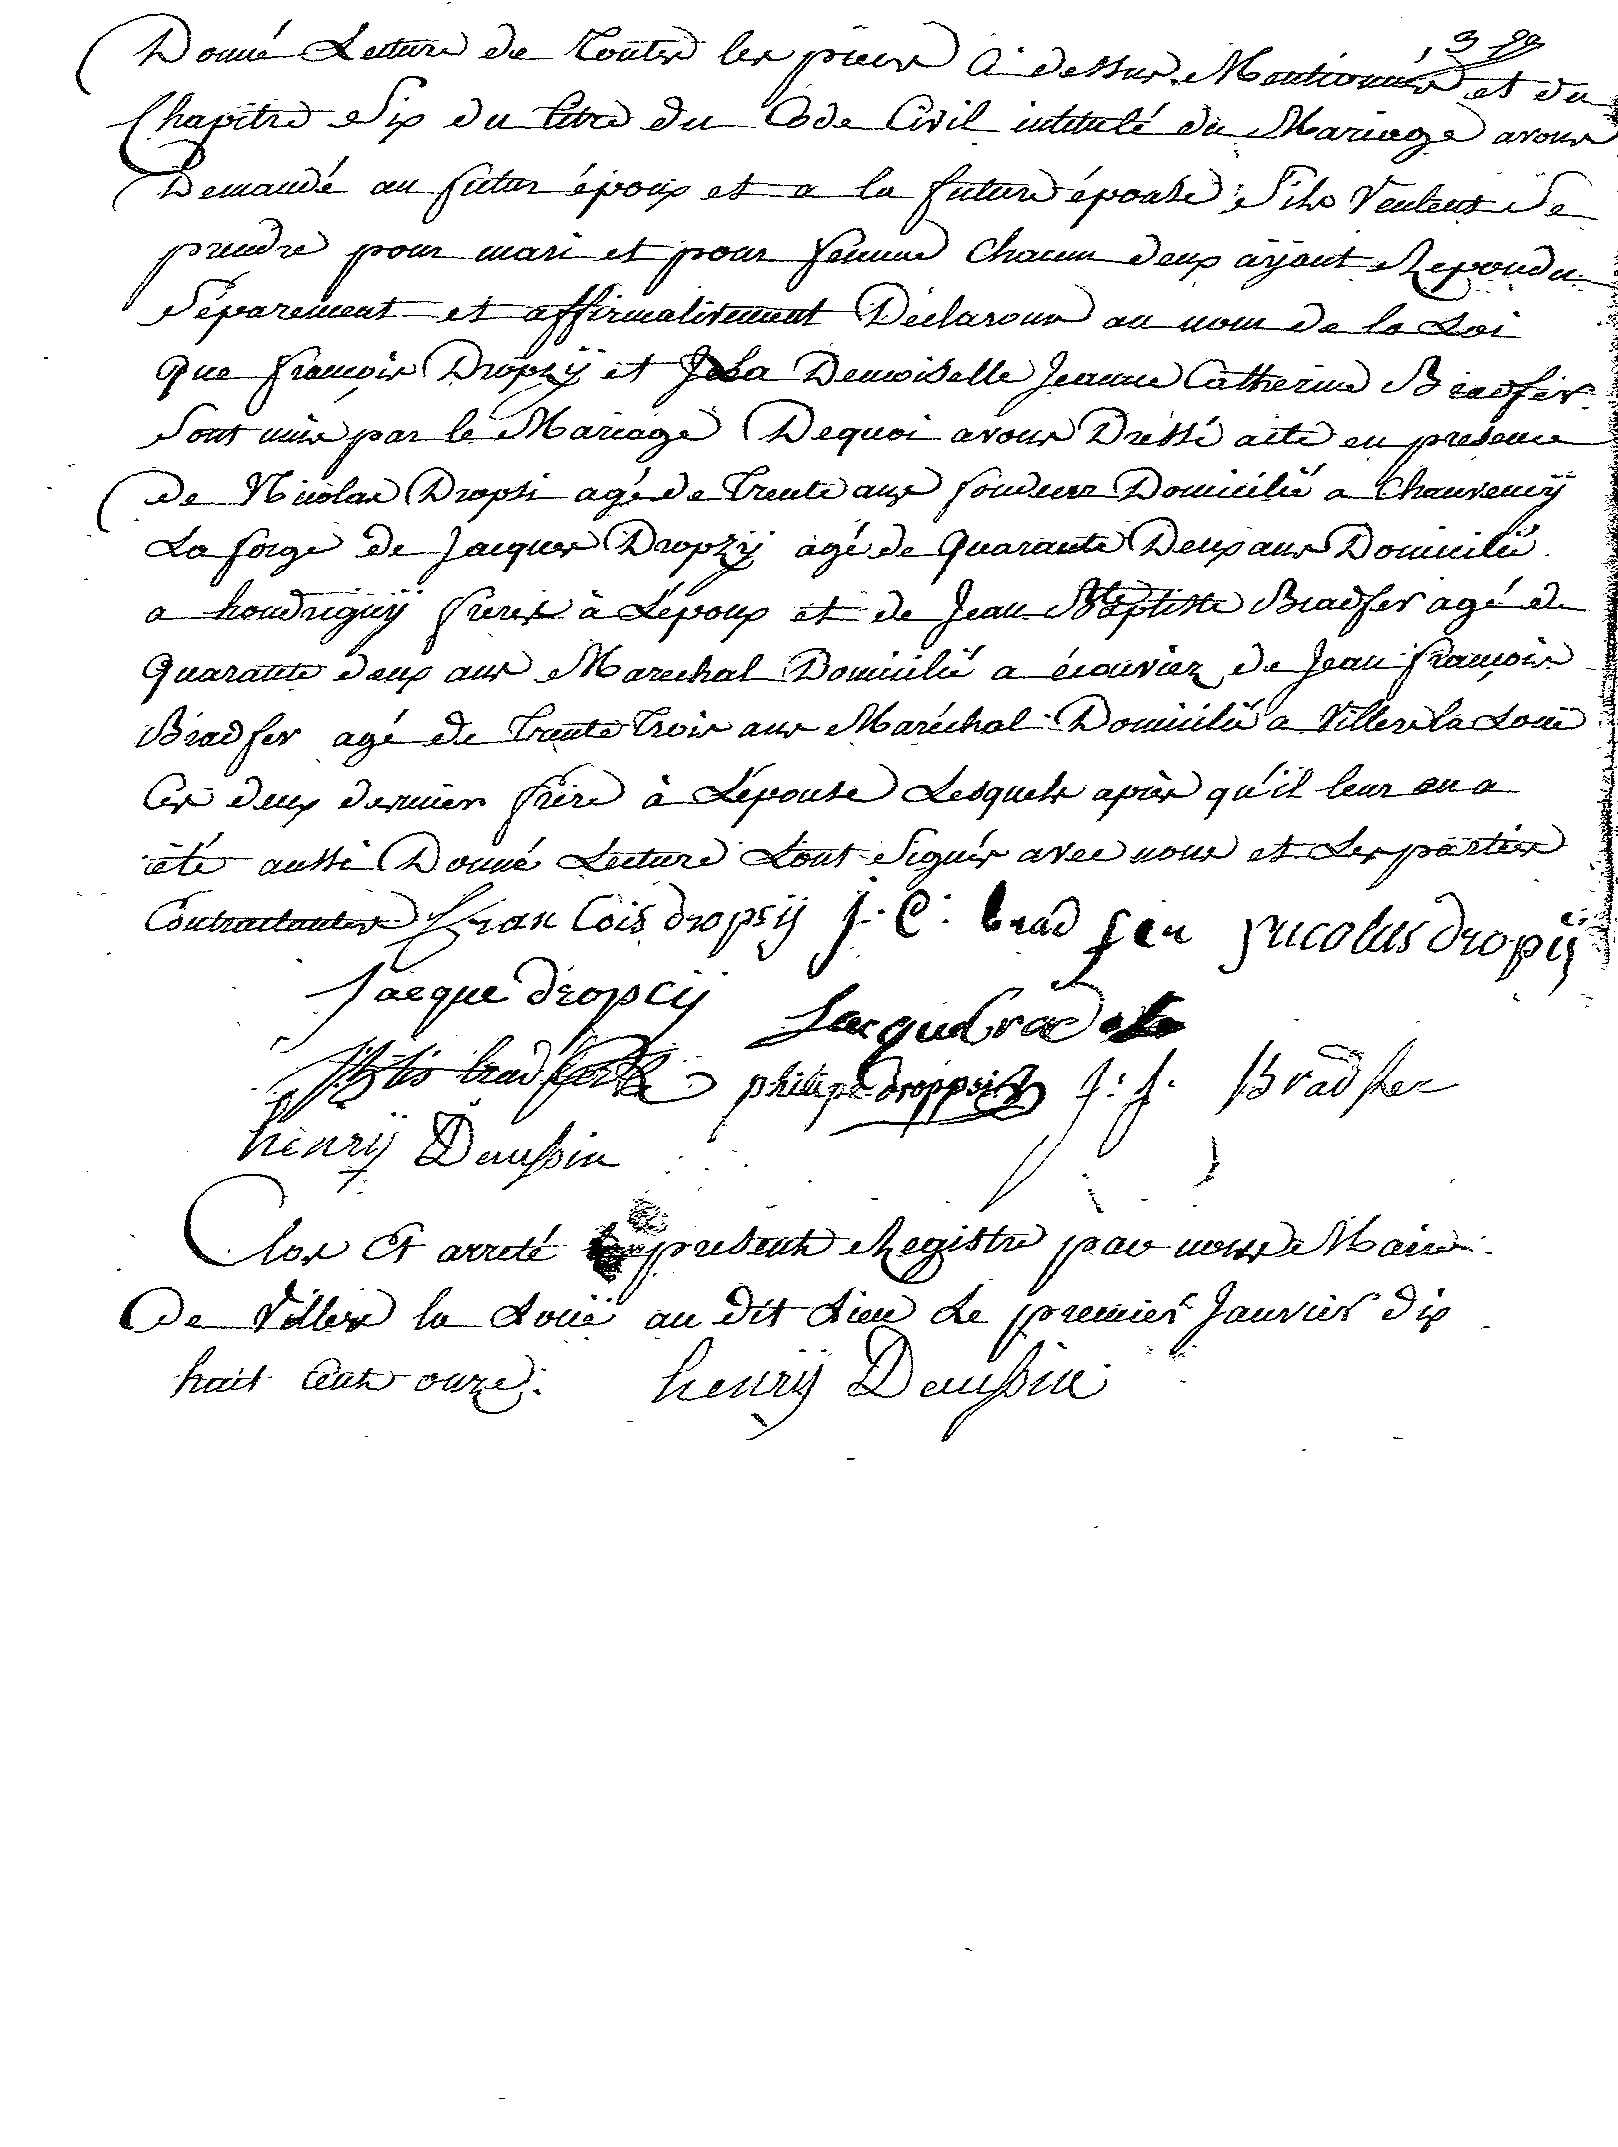 Donné Lecture de Toutes les pieces Ci dessus Mentionnés et du
Chapitre Six du titre du Code Civil intitulé du Mariage avons
Demandé au futur époux et a la future épouse S'ils Veulent Se
prendre pour mari et pour femme Chacun deux aÿant Repondu
Séparément et affirmativement Déclarons au nom de la Loi
Que François Dropzÿ et La Demoiselle Jeanne Catherine Bradfer
Sont unis par le Mariage De quoi avons Dressé acte en presence
de Nicolas Dropsi agé de Trente ans fondeur Domicilié a Chauvencÿ
La forge de Jacques Dropzÿ agé de Quarante Deux ans Domicilié
a houdrignÿ freres à L'époux et de Jean Baptiste Bradfer agé de
Quarante deux ans Marechal Domicilié a écouviez de Jean françois
Bradfer agé de Trente Trois ans Maréchal Domicilié a Villers la Louë
Ces deux dernier frère à L'épouse Lesquels après qu'il leur en a
été aussi Donné Lecture Sont Signés avec nous et Les parties
Contractantes Fran Cois dropsÿ J. C. brad fer Nicolas dropÿ
Jacque dropcÿ
btis bradfer philipe droppsi J: f. Bradfer
henrÿ Daussin
Clos Et arreté present Registre par nous Maire
De Villers la Louë au dit Lieu Le premier Janvier dix
huit Cent onze. henrÿ Daussin